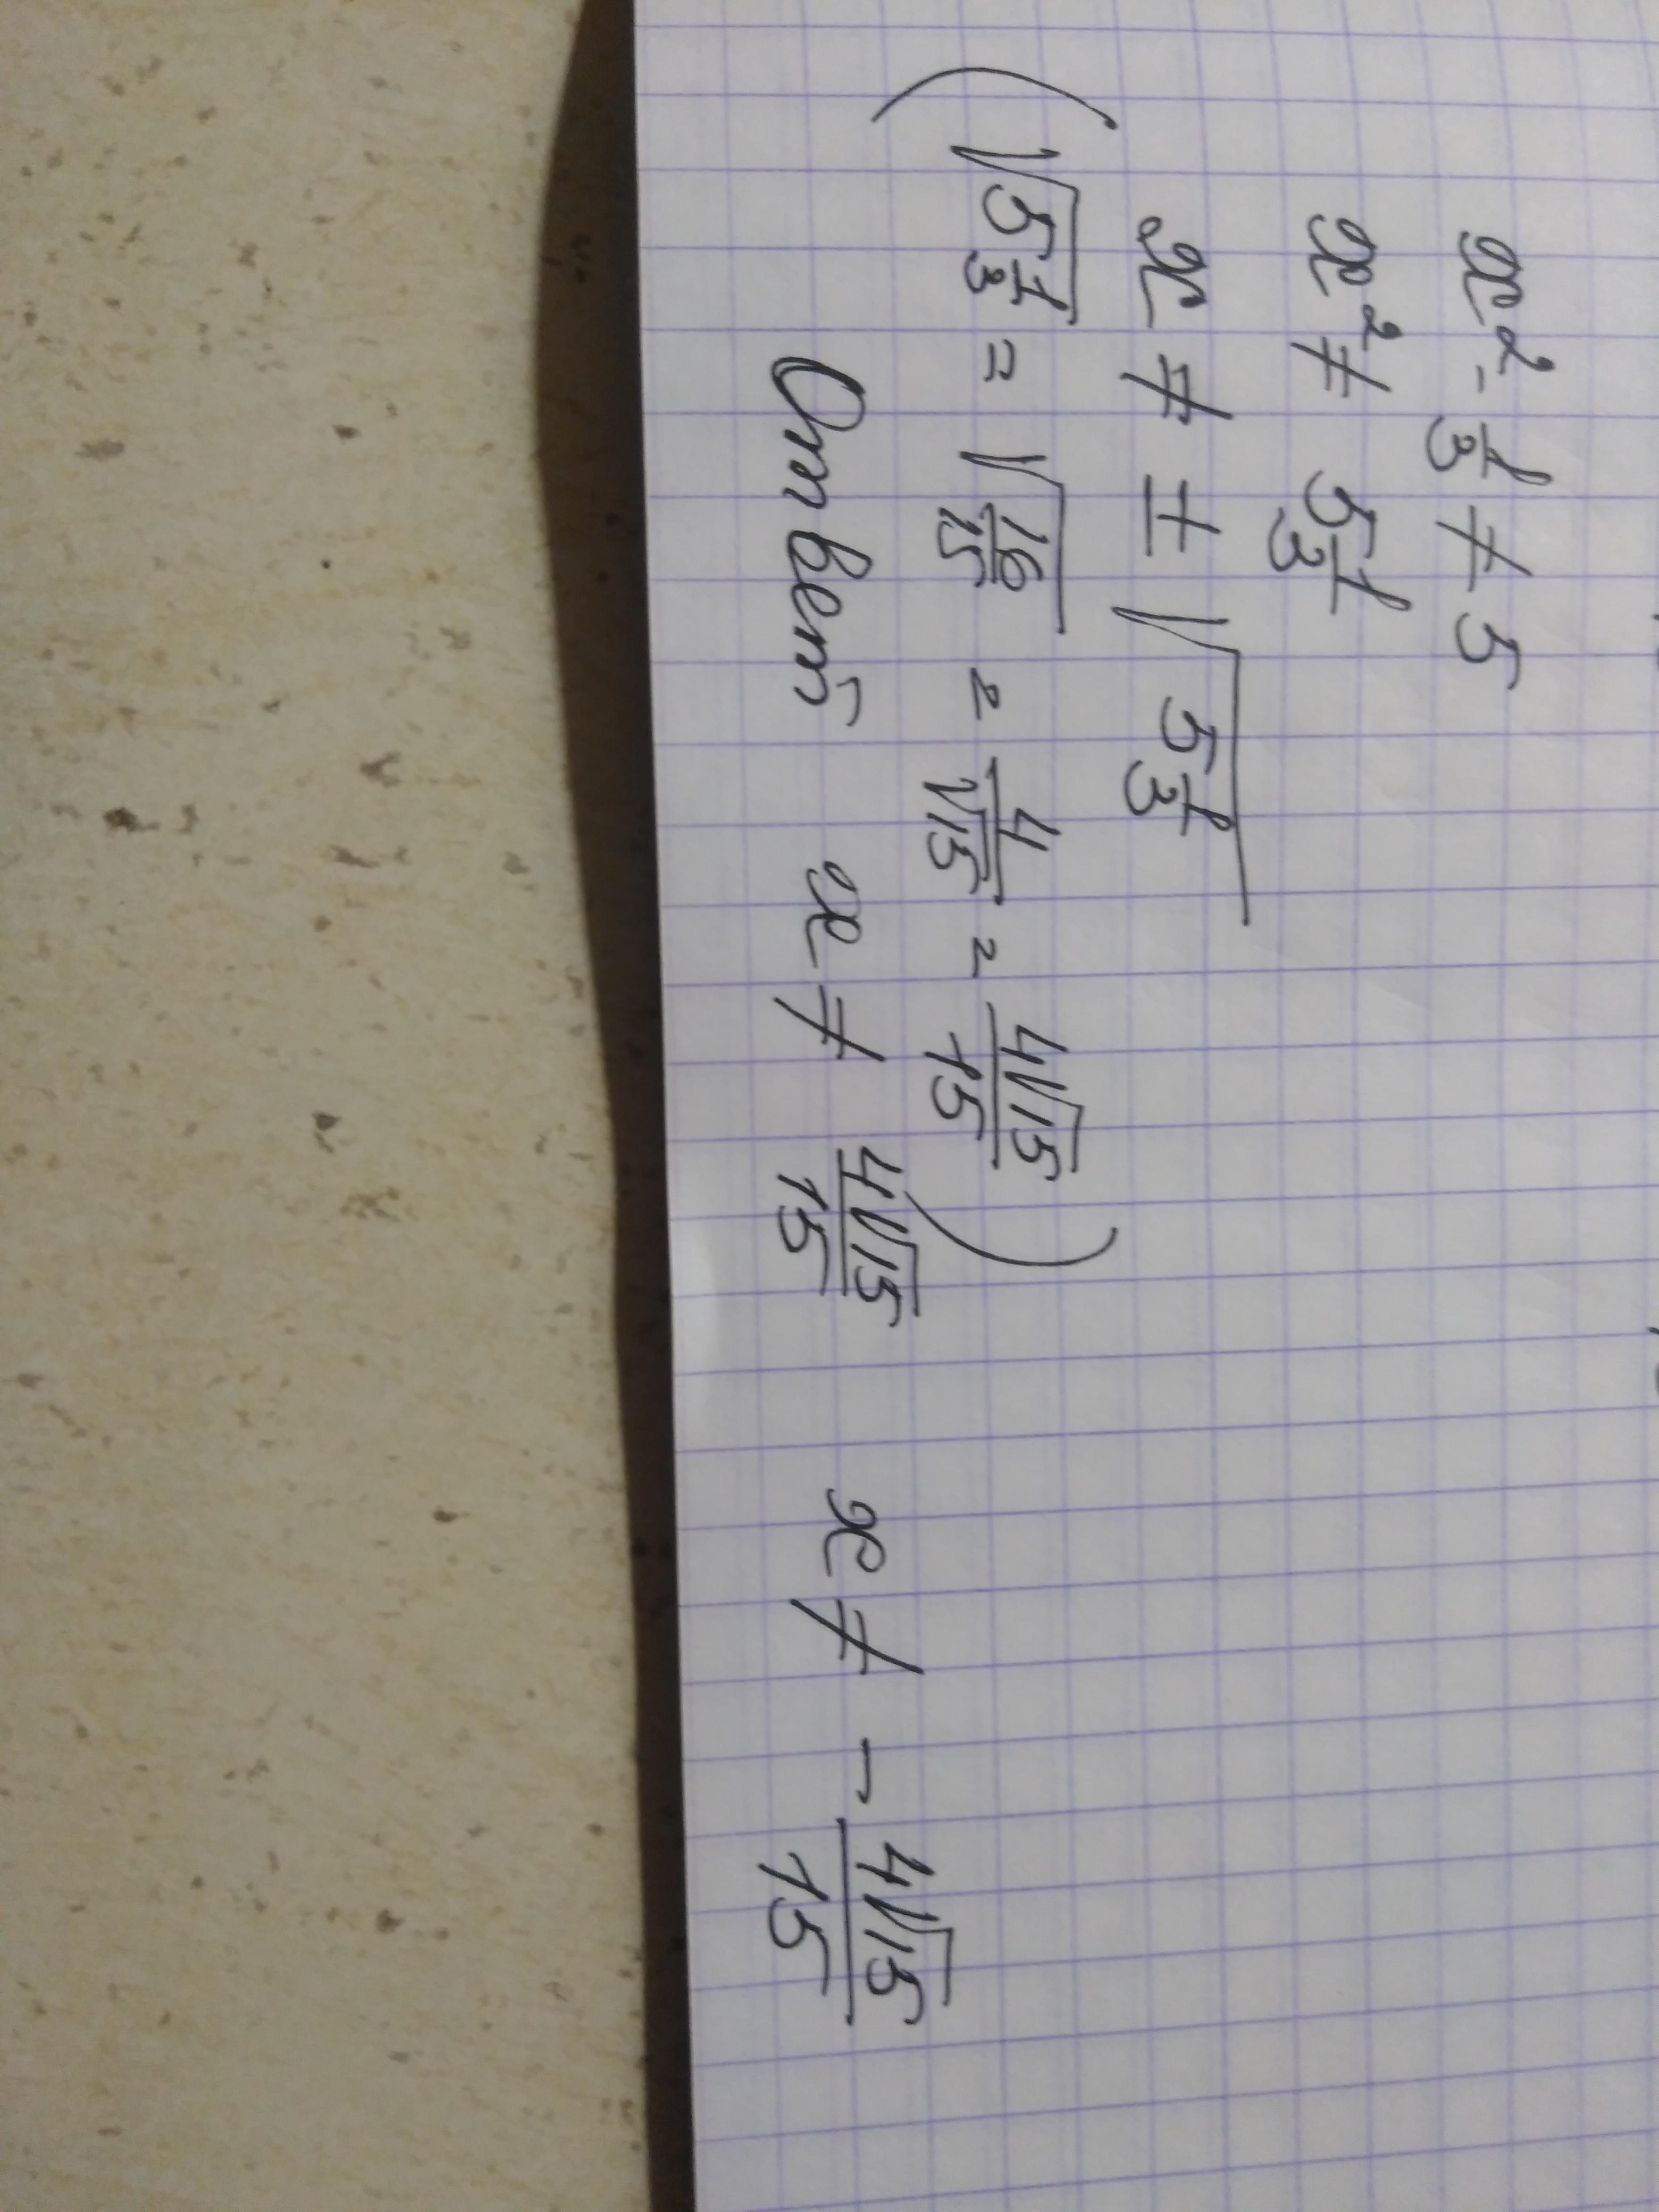 x² - 1/3 ≠ 5
x² ≠ 5 1/3
x ≠ ± √(5 1/3)
( √(5 1/3) = √(16/15) = 4/√15 = 4√15/15 )
Ответ x ≠ 4√15/15 x ≠ - 4√15/15